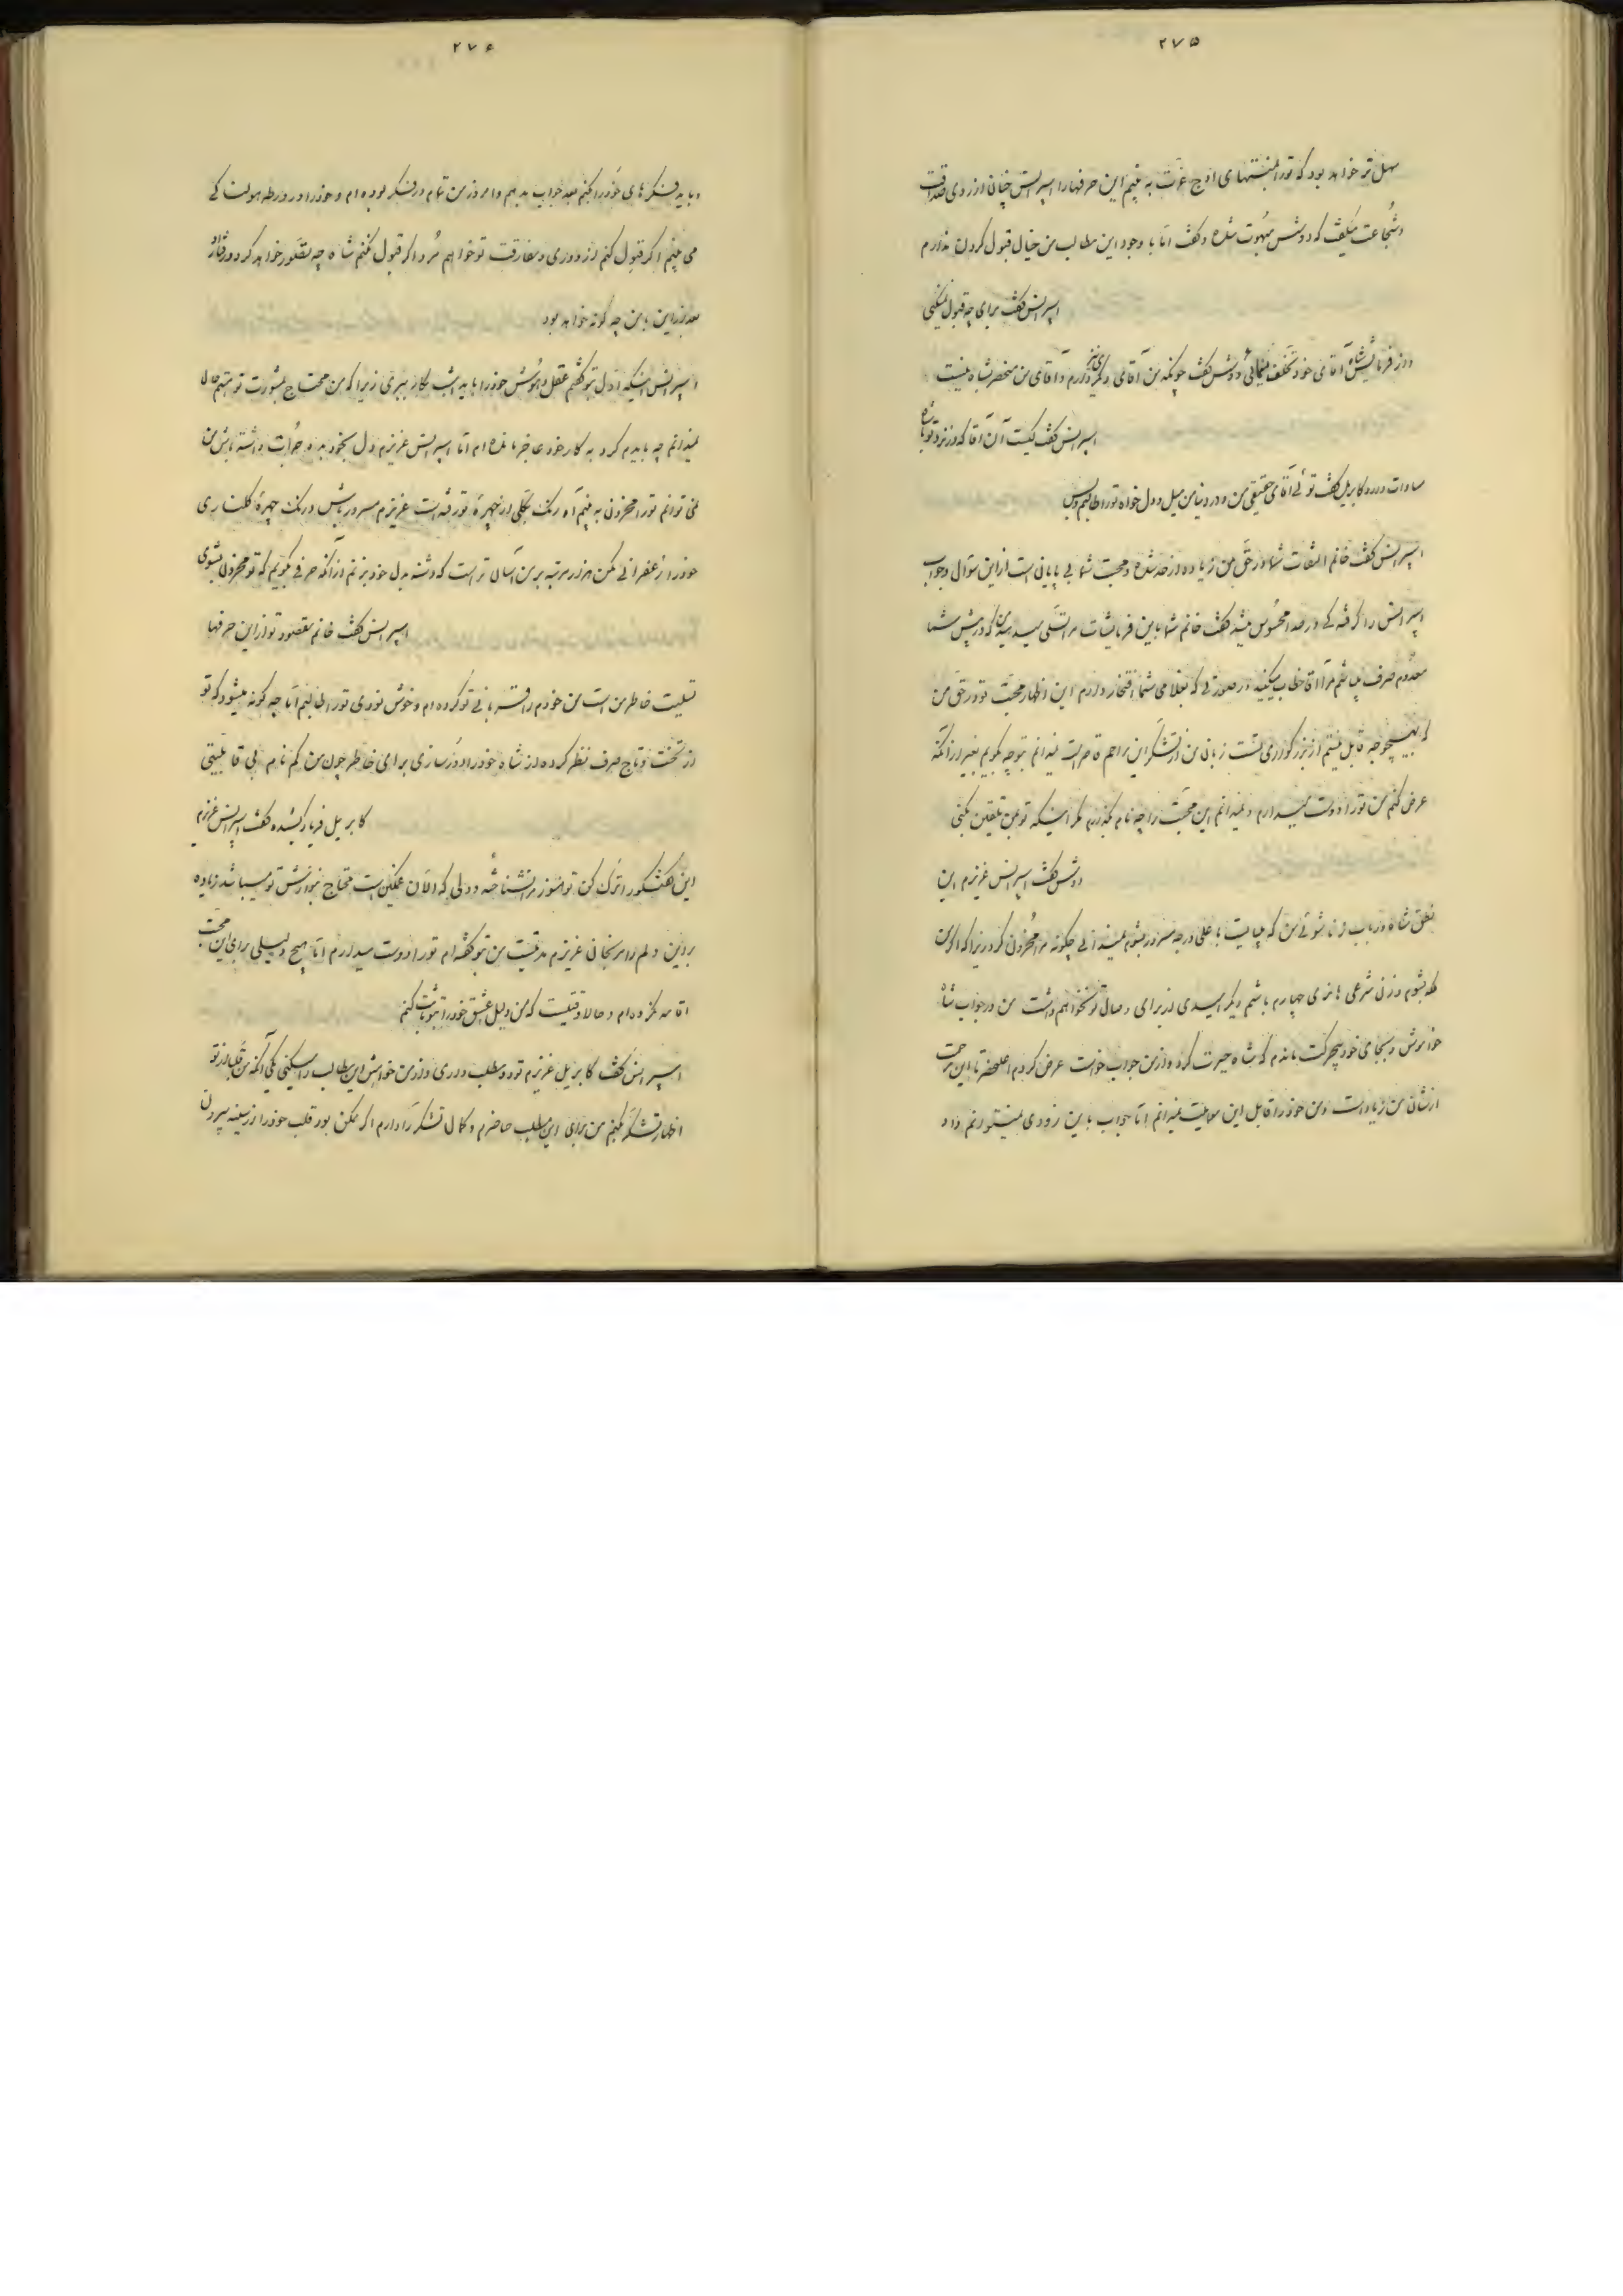 ۲۷۵
سهل تر خواهد بود که تو را بمنتهای اوج عزت به بینم این حرفها را اسپرانس چنان از روی صداقت
و شجاعت میگفت که دوشس مبهوت شده و گفت اما با وجود این مطالب من خیال قبول کردن ندارم
اسپرانس گفت برای چه قبول نمیکنی
و از فرمایش شاه آقای خود تخلف مینمائی دوشس گفت چونکه من آقای دیگری نیز دارم و آقای من منحصر بشاه نیست
اسپرانس گفت کیست آن آقا که در نزد تو با شاه
مساوات دارد کابریل گفت توئی آقای حقیقی من و در دنیا من میل و دل خواه تو را طالبم و بس
اسپرانس گفت خانم التفات شما در حق من زیاده از حد شده و محبت شما بی پایانی است از این سؤال و جواب
اسپرانس را گرفتگی در صدا محسوس میشد گفت خانم شما باین فرمایشات مرا تسلی میدهید من که در پیش شما
معدوم صرف میباشم مرا آقا خطاب میکنید در صورتی که بغلامی شما افتخار دارم این اظهار محبت تو در حق من
که بهیچوجه قابل نیستم از بزرگواری تست زبان من از تشکر این مراحم قاصر است نمیدانم بتو چه بگویم بغیر از آنکه
عرض کنم من تو را دوست میدارم و نمیدانم این محبت را چه نام بگذارم مگر اینکه تو بمن تلقین بکنی
دوشس گفت اسپرانس عزیزم این
نطق شاه در باب زناشوئی من که میبایست باعلی درجه مسرور بشوم نمیدانی چگونه مرا محزون کرد زیرا که اگر من
ملکه بشوم و زن شرعی هانری چهارم باشم دیگر امیدی از برای وصال تو نخواهم داشت من در جواب شاه
خاموش و بجای خود بیحرکت ماندم که شاه حیرت کرد و از من جواب خواست عرض کردم اعلیحضرتا این مرحمت
از شأن من زیاد است و من خود را قابل این موهبت نمیدانم اما جواب باین زودی نمیتوانم داد
۲۷۶
و باید فکرهای خود را بکنم بعد جواب بدهم و امروز من تمام در فکر بوده ام و خود را در ورطه هولناکی
می بینم اگر قبول کنم از دوری و مفارقت تو خواهم مرد و اگر قبول نکنم شاه چه تصور خواهد کرد و رفتارش
بعد از این با من چه گونه خواهد بود
اسپرانس اینکه اول بتو گفتم عقل و هوش خود را باید امشب بکار ببری زیرا که من محتاج بمشورت تو هستم حال
نمیدانم چه باید کرد به کار خود عاجز مانده ام اما اسپرانس عزیزم دل بخود بده و جرأت داشته باش من
نمی توانم تو را محزون به بینم آه رنگ بکلی از چهره تو رفته است عزیزم مسرور باش و رنگ چهره گلناری
خود را زعفرانی مکن هزار مرتبه بر من آسان تر است که دشنه بدل خود بزنم از آنکه حرفی بگویم که تو محزون بشوی
اسپرانس گفت خانم مقصود تو از این حرفها
تسلیت خاطر من است من خودم را قربانی تو کرده ام و خوش نودی تو را طالبم اما چه گونه میشود که تو
از تخت و تاج صرف نظر کرده از شاه خود را دور سازی برای خاطر چون من گم نام بی قابلیتی
کابریل فریاد کشیده گفت اسپرانس عزیزم
این گفتگو را ترک کن تو هنوز مرا نشناخته و دلی که الآن غمگین است محتاج بنوازش تو میباشد زیاده
بر این دلم را مرنجان عزیزم مدتیست من بتو گفته ام تو را دوست میدارم اما هیچ دلیلی برای این محبت
اقامه نکرده ام و حالا وقتیست که من دلیل عشق خود را بتو ثابت کنم
اسپرانس گفت کابریل عزیزم تو دو مطلب داری و از من خواهش این مطالب را میکنی یکی آنکه من قبل از تو
اظهار تشکر بکنم من برای این مطلب حاضرم و کمال تشکر را دارم اگر ممکن بود قلب خود را از سینه بیرون